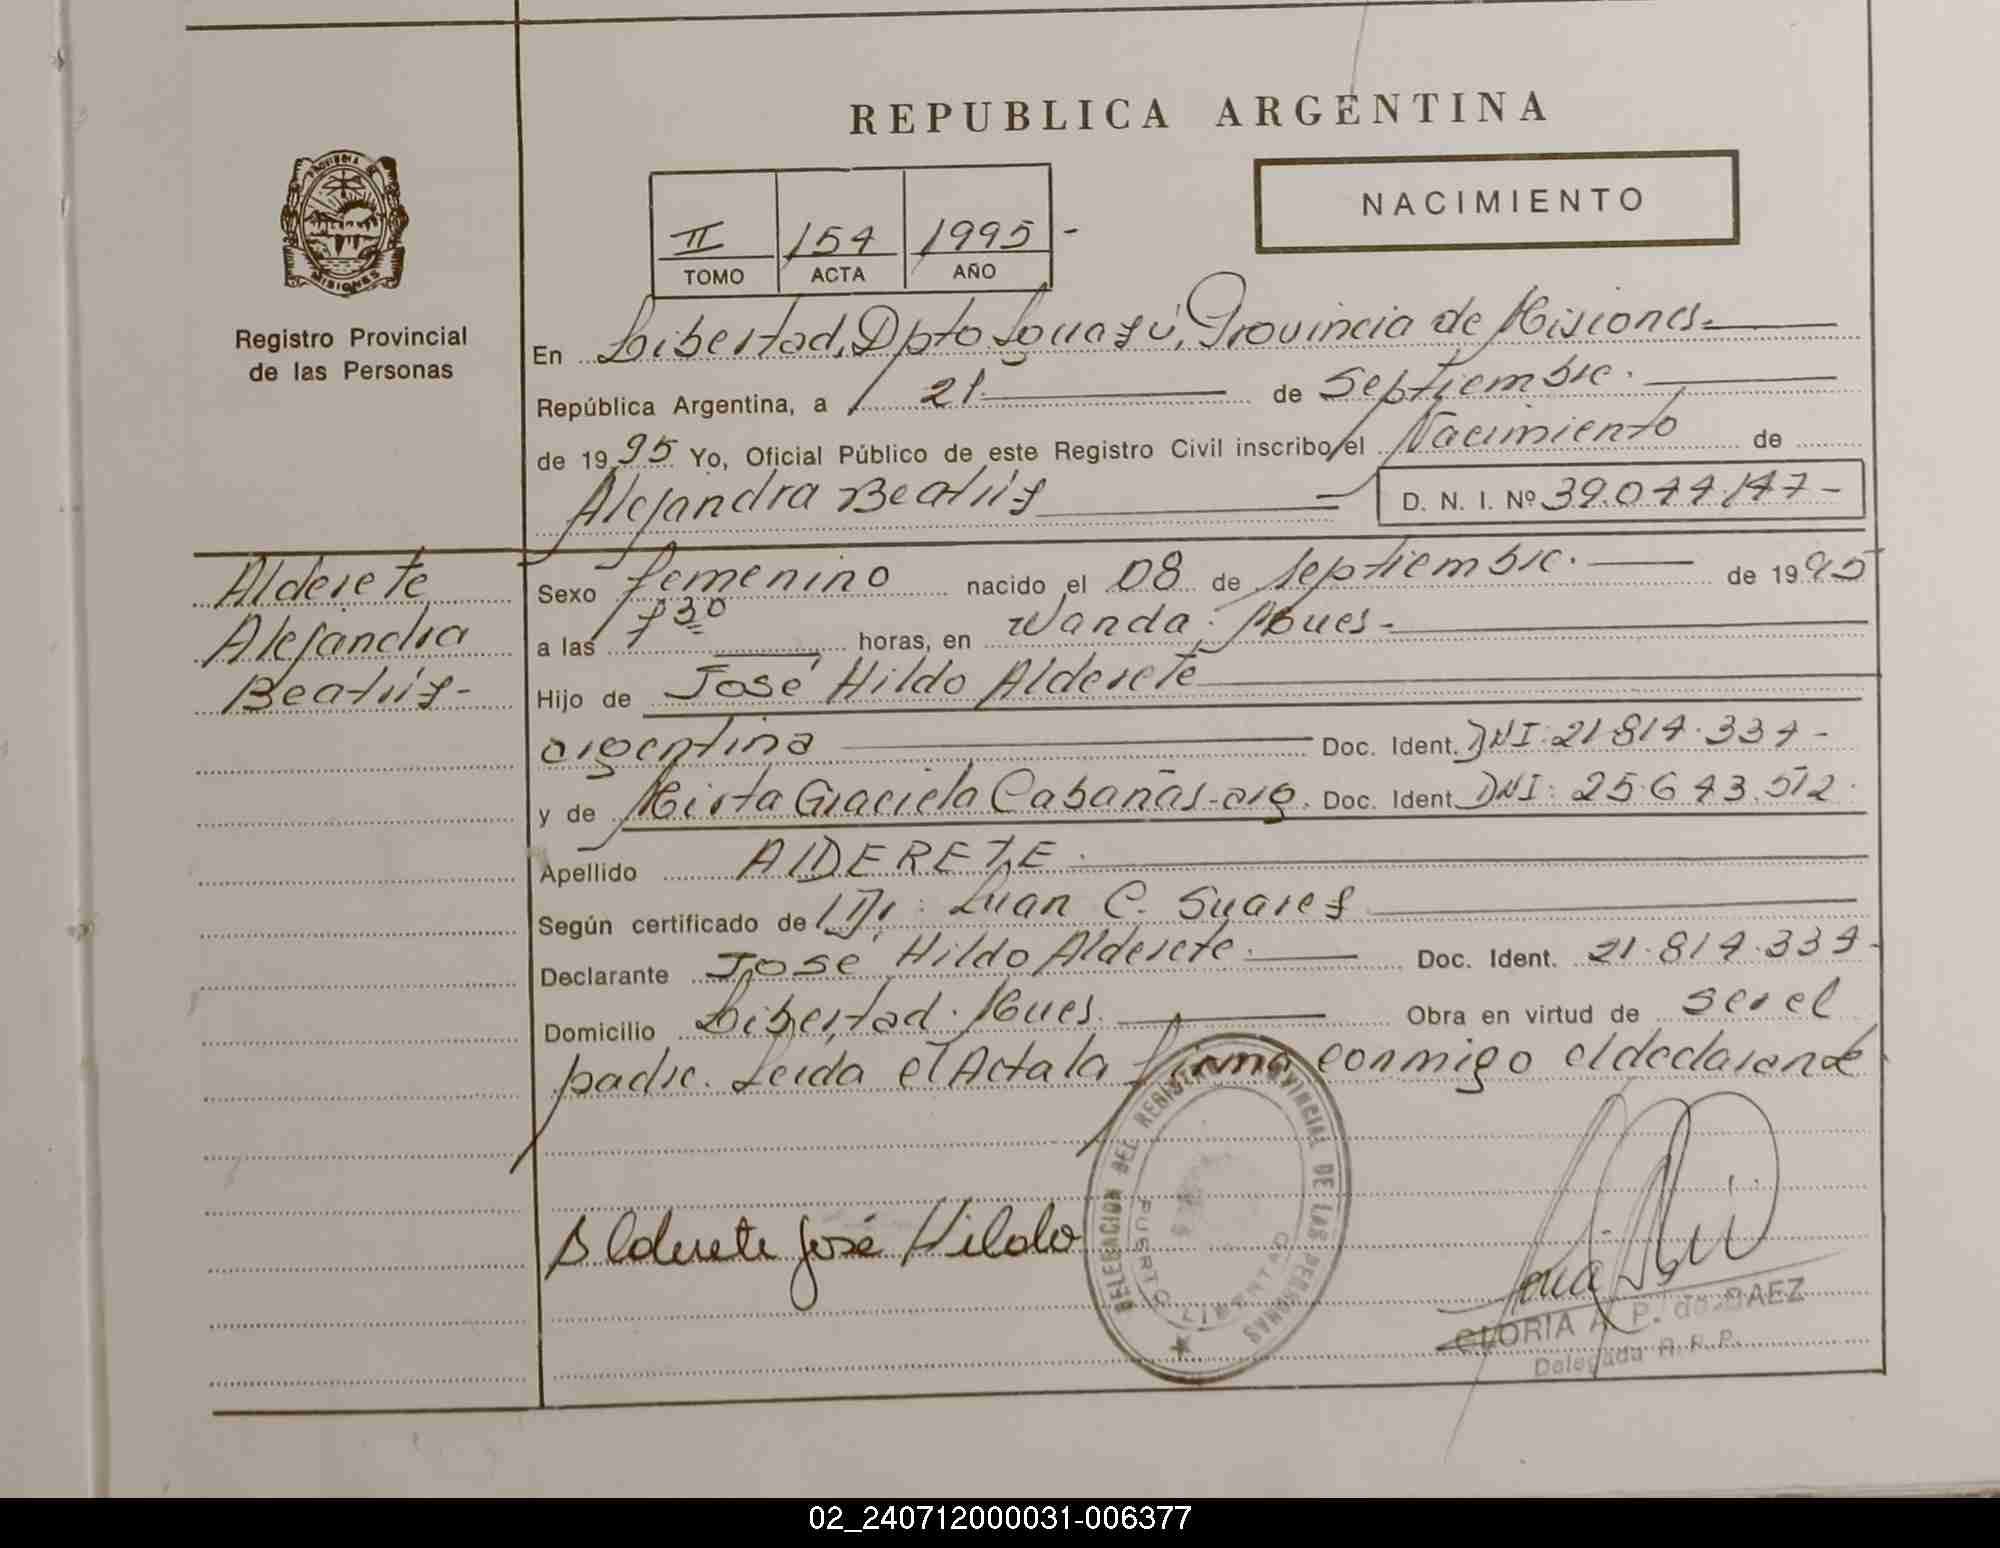 REPUBLICA ARGENTINA
NACIMIENTO
PROVINCIA DE
MISIONES
Registro Provincial
de las Personas
II 154 1995-
TOMO ACTA AÑO
En Libertad, Dpto Iguazú, Provincia de Misiones.
República Argentina, a 21 de Septiembre.
de 1995 Yo, Oficial Público de este Registro Civil inscribo el Nacimiento de
Alejandra Beatríz
D. N. I. Nº 39.044.147-
Alderete
Alejandra
Beatríz-
Sexo femenino nacido el 08 de septiembre. de 1995
a las 730 horas, en Wanda. Mnes-
Hijo de José Hildo Alderete
argentina Doc. Ident. DNI: 21.814.334-
y de Mirta Graciela Cabañas-arg. Doc. Ident. DNI: 25.643.512.
Apellido ALDERETE.
Según certificado de Dr: Juan C. Suarez
Declarante José Hildo Alderete. Doc. Ident. 21.814.334-
Domicilio Libertad. Mnes. Obra en virtud de ser el
padre. Leída el Acta la firma conmigo el declarante
Alderete José Hildo
DELEGACION DEL REGISTRO PROVINCIAL DE LAS PERSONAS
PUERTO LIBERTAD
GLORIA A. P. de BAEZ
Delegada R.P.P.
02_240712000031-006377